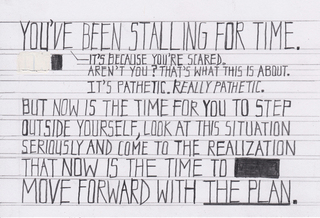 YOU'VE BEEN STALLING FOR TIME.
IT'S BECAUSE YOU'RE SCARED.
AREN'T YOU? THAT'S WHAT THIS IS ABOUT.
IT'S PATHETIC. REALLY PATHETIC.
BUT NOW IS THE TIME FOR YOU TO STEP
OUTSIDE YOURSELF, LOOK AT THIS SITUATION
SERIOUSLY AND COME TO THE REALIZATION
THAT NOW IS THE TIME TO
MOVE FORWARD WITH THE PLAN.